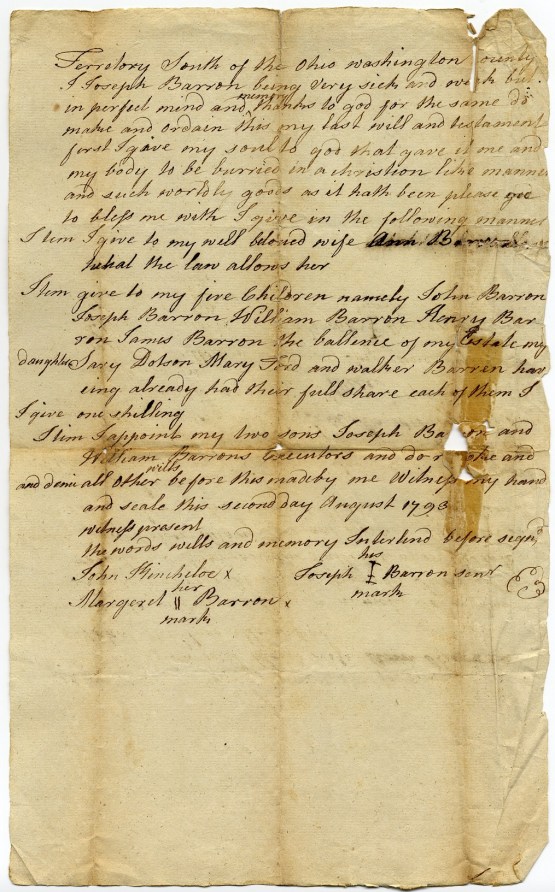 Territory South of the Ohio washington County
I Joseph Barron being very sick and weak but
memory
in perfect mind and thanks to god for the same do
make and ordain this my last will and testament
first I gave my soul to god that gave it me and
my body to be burried in a christion like manner
and such worldly goods as it hath been please god
to bless me with I give in the following manner
Item I give to my well beloved wife Ann Barron
what the law allows her
Item give to my five Children namely John Barron
Joseph Barron William Barron Henry Bar
ron James Barron the ballence of my Estate my
daughters Sary Dotson Mary Ford and walker Barren hav
eing already had their full share each of them I
I give one shilling
Item I appoint my two sons Joseph Barron and
William Barrons executors and do revoke and
wills
and denie all other before this made by me Witness my hand
and seale this second day August 1793
witness present
the words wills and memory Interlind before sign
his
John Hincheloe x Joseph I Barron senr
her
mark
Margeret || Barron x
mark